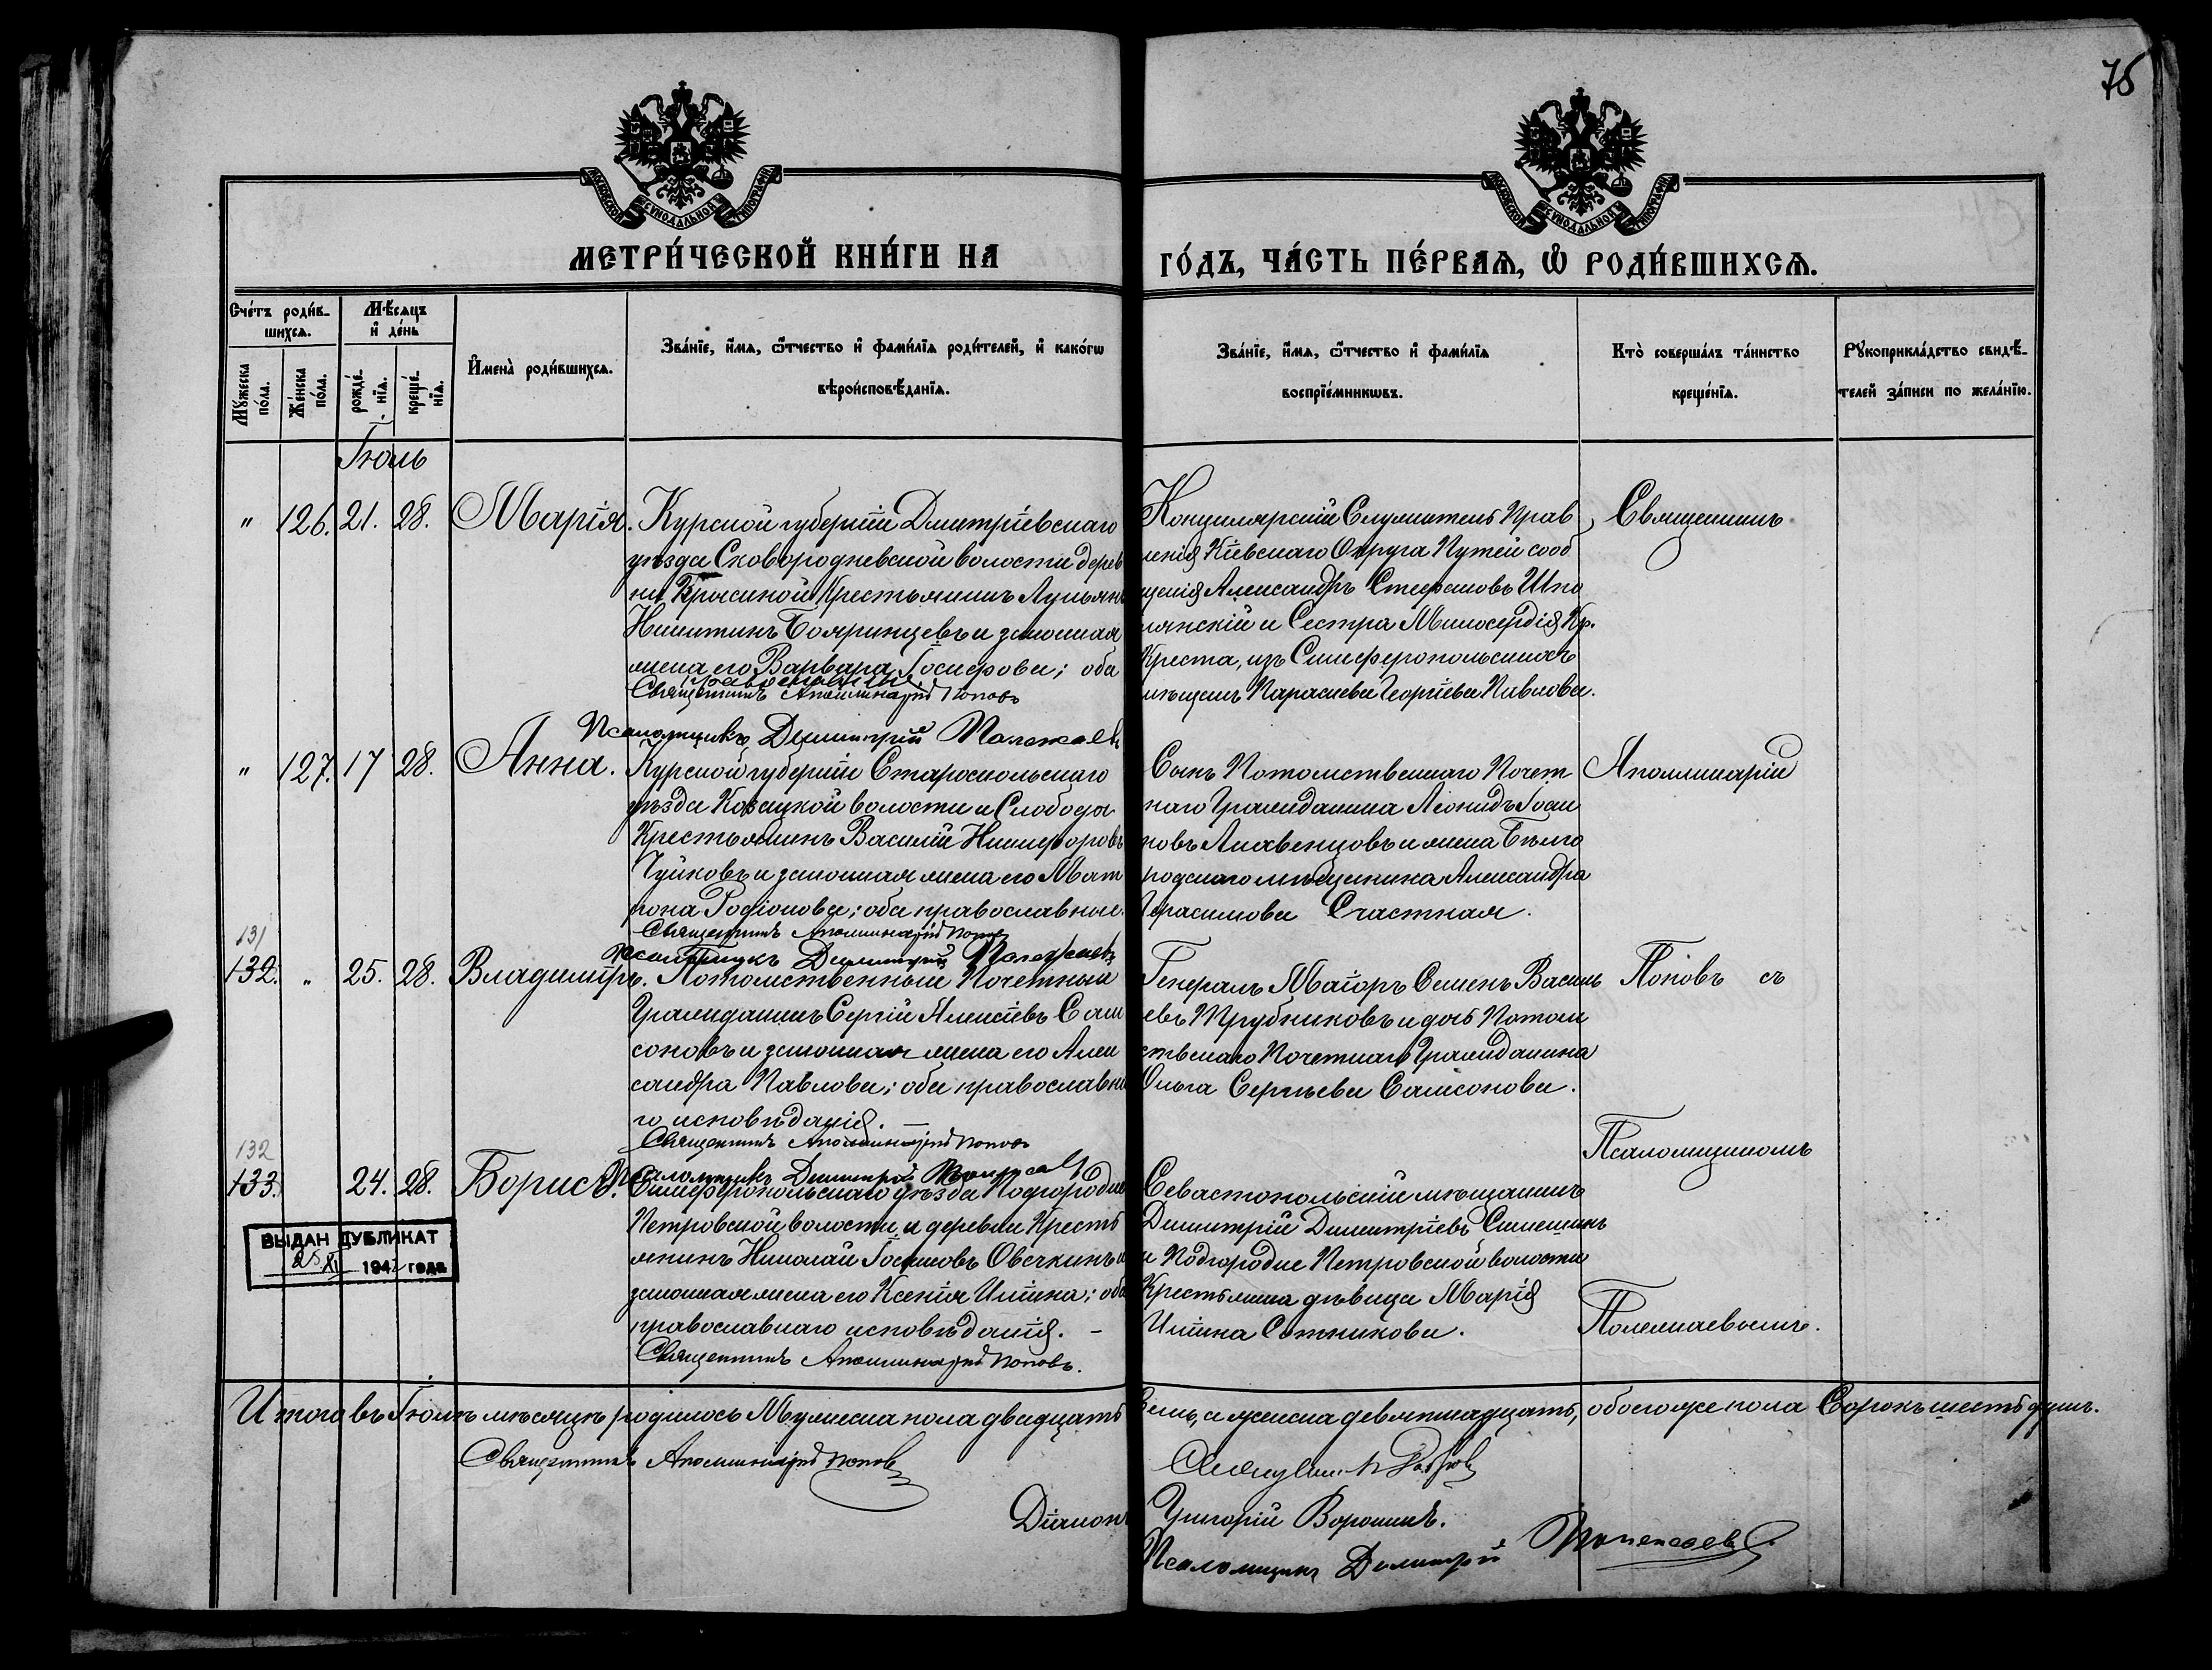 75
МОСКОВСКОЙ СѴНОДАЛЬНОЙ ТИПОГРАФІИ
МОСКОВСКОЙ СѴНОДАЛЬНОЙ ТИПОГРАФІИ
МЕТРИ́ЧЕСКОЙ КНИ́ГИ НА
ГО́ДЪ, ЧА́СТЬ ПЕ́РВАѦ, Ѡ҆ РОДИ́ВШИХСѦ.
Сче́тъ роди́в-
шихсѧ.
Мꙋ́жеска по́ла.
Же́нска по́ла.
Мѣ́сѧцъ
и҆ де́нь
рожде́-
нїѧ.
креще́-
нїѧ.
И҆мена̀ роди́вшихсѧ.
Зва́нїе, и҆́мѧ, ѻ҆́тчество и҆ фами́лїѧ роди́телей, и҆ како́гѡ
вѣроисповѣ́данїѧ.
Зва́нїе, и҆́мѧ, ѻ҆́тчество и҆ фами́лїѧ
воспрїе́мникѡвъ.
Кто̀ соверша́лъ та́инство
креще́нїѧ.
Рꙋкоприкла́дство свидѣ́-
телей за́писи по жела́нїю.
Іюль
" 126. 21. 28. Марія.
Курской губерніи Дмитріевскаго
уѣзда Сковородневской волости дерев
ни Красиной Крестьянинъ Лукьянъ
Никитинъ Бояринцевъ и законная
жена его Варвара Іосифова; оба
православныя
Священникъ Аполлинарій Поповъ
Псаломщикъ Димитрій Полежаевъ
Канцелярскій Служитель Прав
ленія Кіевскаго Округа Путей сооб
щенія Александръ Стефановъ Шпо
лянскій и Сестра Милосердія Кр.
Креста, изъ Симферопольскихъ
мѣщанъ Параскева Георгіева Павлова.
Священникъ
" 127. 17 28. Анна.
Курской губерніи Старооскольскаго
уѣзда Казацкой волости и Слободы
Крестьянинъ Василій Никифоровъ
Чуйковъ и законная жена его Мат
рона Родіонова; оба православные.
Священникъ Аполлинарій Поповъ
Псаломщикъ Димитрій Полежаевъ
Сынъ Потомственнаго Почет
наго Гражданина Леонидъ Іоан
новъ и жена Бѣлго
родскаго мѣщанина Александра
Герасимова Счастная.
Аполлинарій
131
132. " 25. 28. Владиміръ.
Потомственный Почетный
Гражданинъ Сергій Алексіевъ Сам
соновъ и законная жена его Алек
сандра Павлова; оба православна
го исповѣданія. —
Священникъ Аполлинарій Поповъ
Псаломщикъ Димитрій Полежаевъ
Генералъ Маіоръ Семенъ Василь
евъ Трубниковъ и дочь Потом
ственаго Почетнаго Гражданина
Ольга Сергѣева Самсонова.
Поповъ съ
Псаломщикомъ
132
133. 24. 28. Борисъ.
Симферопольскаго уѣзда Подгородне
Петровской волости и деревни Кресть
янинъ Николай Іоакимовъ Овечкинъ и
законная жена его Ксенія Иліина; оба
православнаго исповѣданія. —
Священникъ Аполлинарій Поповъ.
Севастопольскій мѣщанинъ
Димитрій Димитріевъ
и Подгородне Петровской волости
Крестьянка дѣвица Марія
Иліина Сотникова.
Полежаевымъ.
ВЫДАН ДУБЛИКАТ
25 XI 194 года
Итого въ Іюлѣ мѣсяцѣ родилось Мужеска пола двадцать семь, а женска девятнадцать, обоего же пола Сорокъ шесть душъ.
Священникъ Аполлинарій Поповъ
Діаконъ Григорій
Псаломщикъ Димитрій Полежаевъ